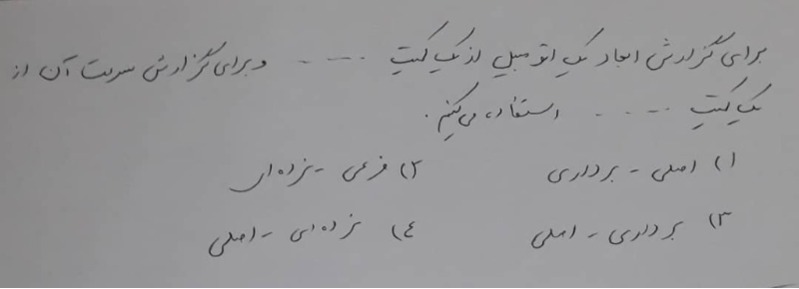 برای گزارش ابعاد یک اتومبیل از یک کمیت ..... و برای گزارش سرعت آن از
یک کمیت ..... استفاده می‌کنیم.
۱) اصلی - برداری ۲) فرعی - نرده‌ای
۳) برداری - اصلی ۴) نرده‌ای - اصلی